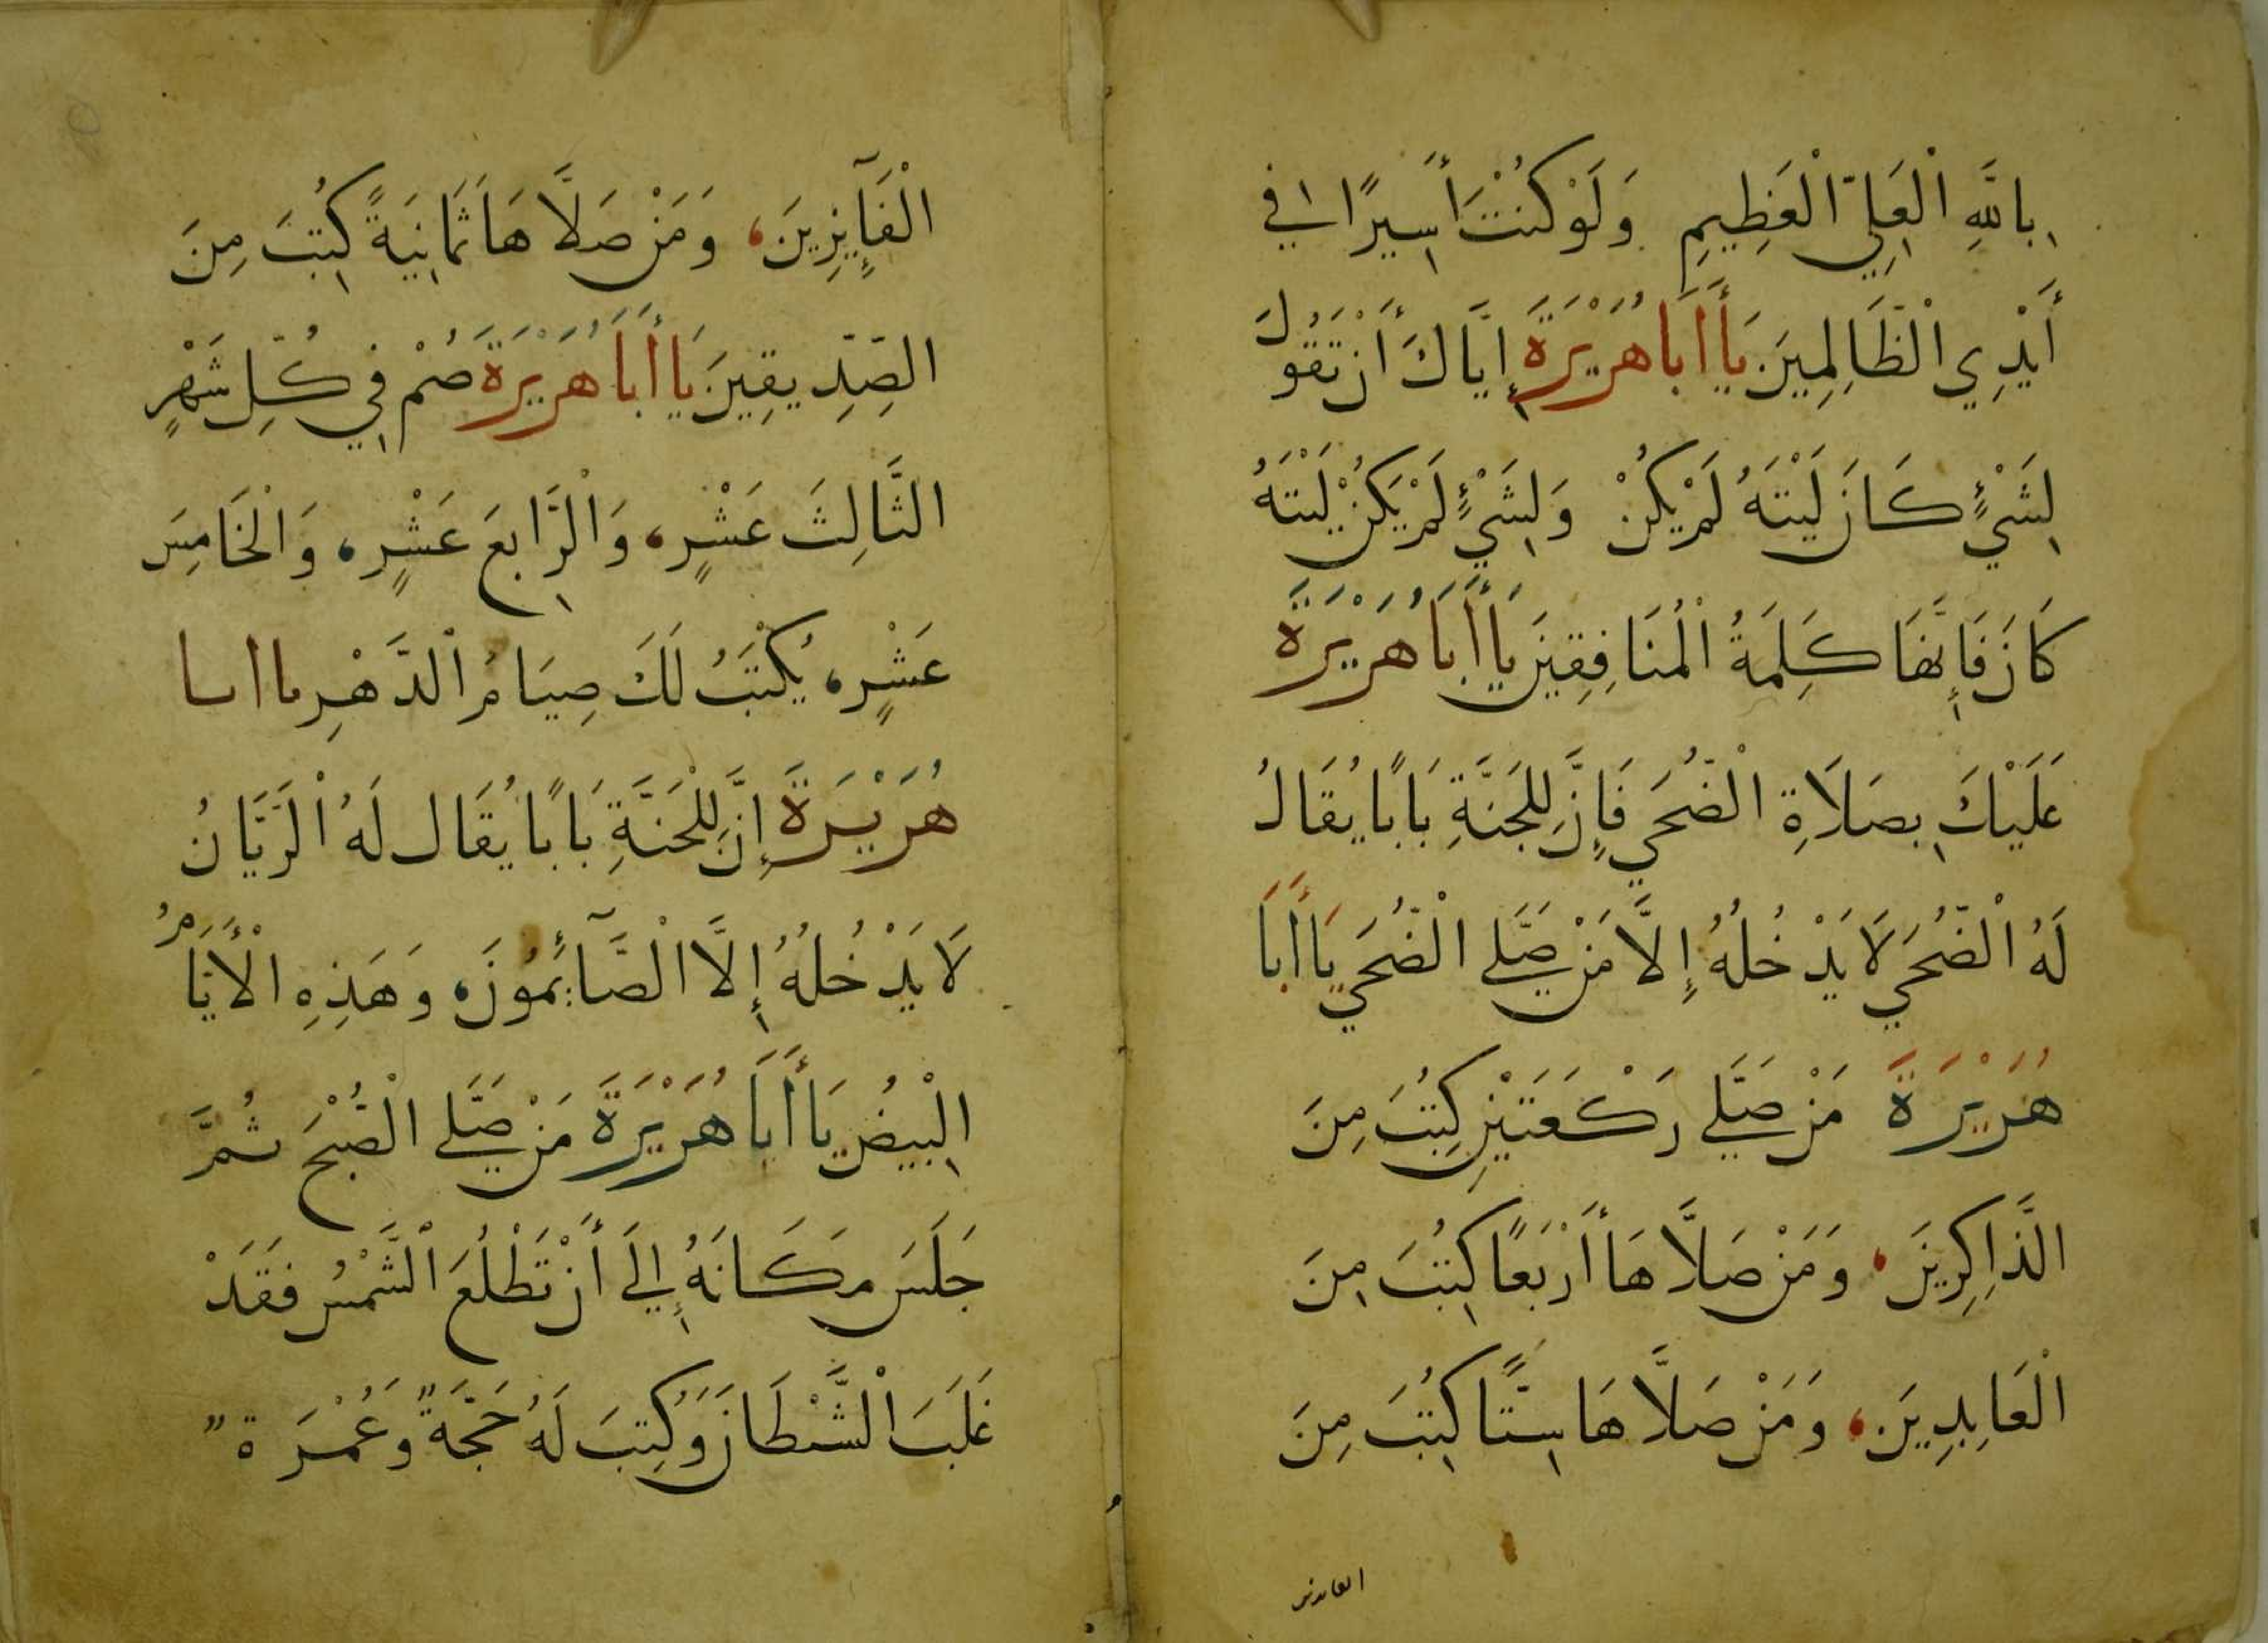 بِاللَّهِ الْعَلِيِّ الْعَظِيمِ وَلَوْ كُنْتَ أَسِيرًا فِي
أَيْدِي الْظَّالِمِينَ يَا أَبَا هُرَيْرَةَ إِيَّاكَ أَنْ تَقُولَ
لِشَيْءٍ كَانَ لَيْتَهُ لَمْ يَكُنْ وَلِشَيْءٍ لَمْ يَكُنْ لَيْتَهُ
كَانَ فَإِنَّهَا كَلِمَةُ الْمُنَافِقِينَ يَا أَبَا هُرَيْرَةَ
عَلَيْكَ بِصَلَاةِ الْضُّحَى فَإِنَّ لِلجَنَّةِ بَابًا يُقَالُ
لَهُ الْضُّحَى لَا يَدْخُلُهُ إِلَّا مَنْ صَلَّى الْضُّحَى يَا أَبَا
هُرَيْرَةَ مَنْ صَلَّى رَكْعَتَيْنِ كُتِبَ مِنَ
الذَّاكِرِينَ، وَمَنْ صَلَّاهَا أَرْبَعًا كُتِبَ مِنَ
الْعَابِدِينَ، وَمَنْ صَلَّاهَا سِتًّا كُتِبَ مِنَ
الْفَآئِزِينَ، وَمَنْ صَلَّاهَا ثَمَانِيَةً كُتِبَ مِنَ
الصِّدِّيقِينَ يَا أَبَا هُرَيْرَةَ صُمْ فِي كُلِّ شَهْرٍ
الثَّالِثَ عَشْرٍ، وَالْرَّابِعَ عَشْرٍ، وَالْخَامِسَ
عَشْرٍ، يُكْتَبُ لَكَ صِيَامُ الْدَّهْرِ يا ابا
هُرَيْرَةَ إِنَّ لِلْجَنَّةِ بَابًا يُقَال لَهُ الْرَّيَّانُ
لَا يَدْخُلُهُ إِلَّا الْصَّآئِمُونَ، وَهَذِهِ الْأَيَّامُ
الْبِيضُ يَا أَبَا هُرَيْرَةَ مَنْ صَلَّى الْصُّبْحَ ثُمَّ
جَلَسَ مَكَانَهُ إِلَى أَنْ تَطْلُعَ الْشَّمْسُ فَقَدْ
غَلَبَ الْشَّيْطَانَ وَكُتِبَ لَهُ حَجَّةً وَعُمْرَةً